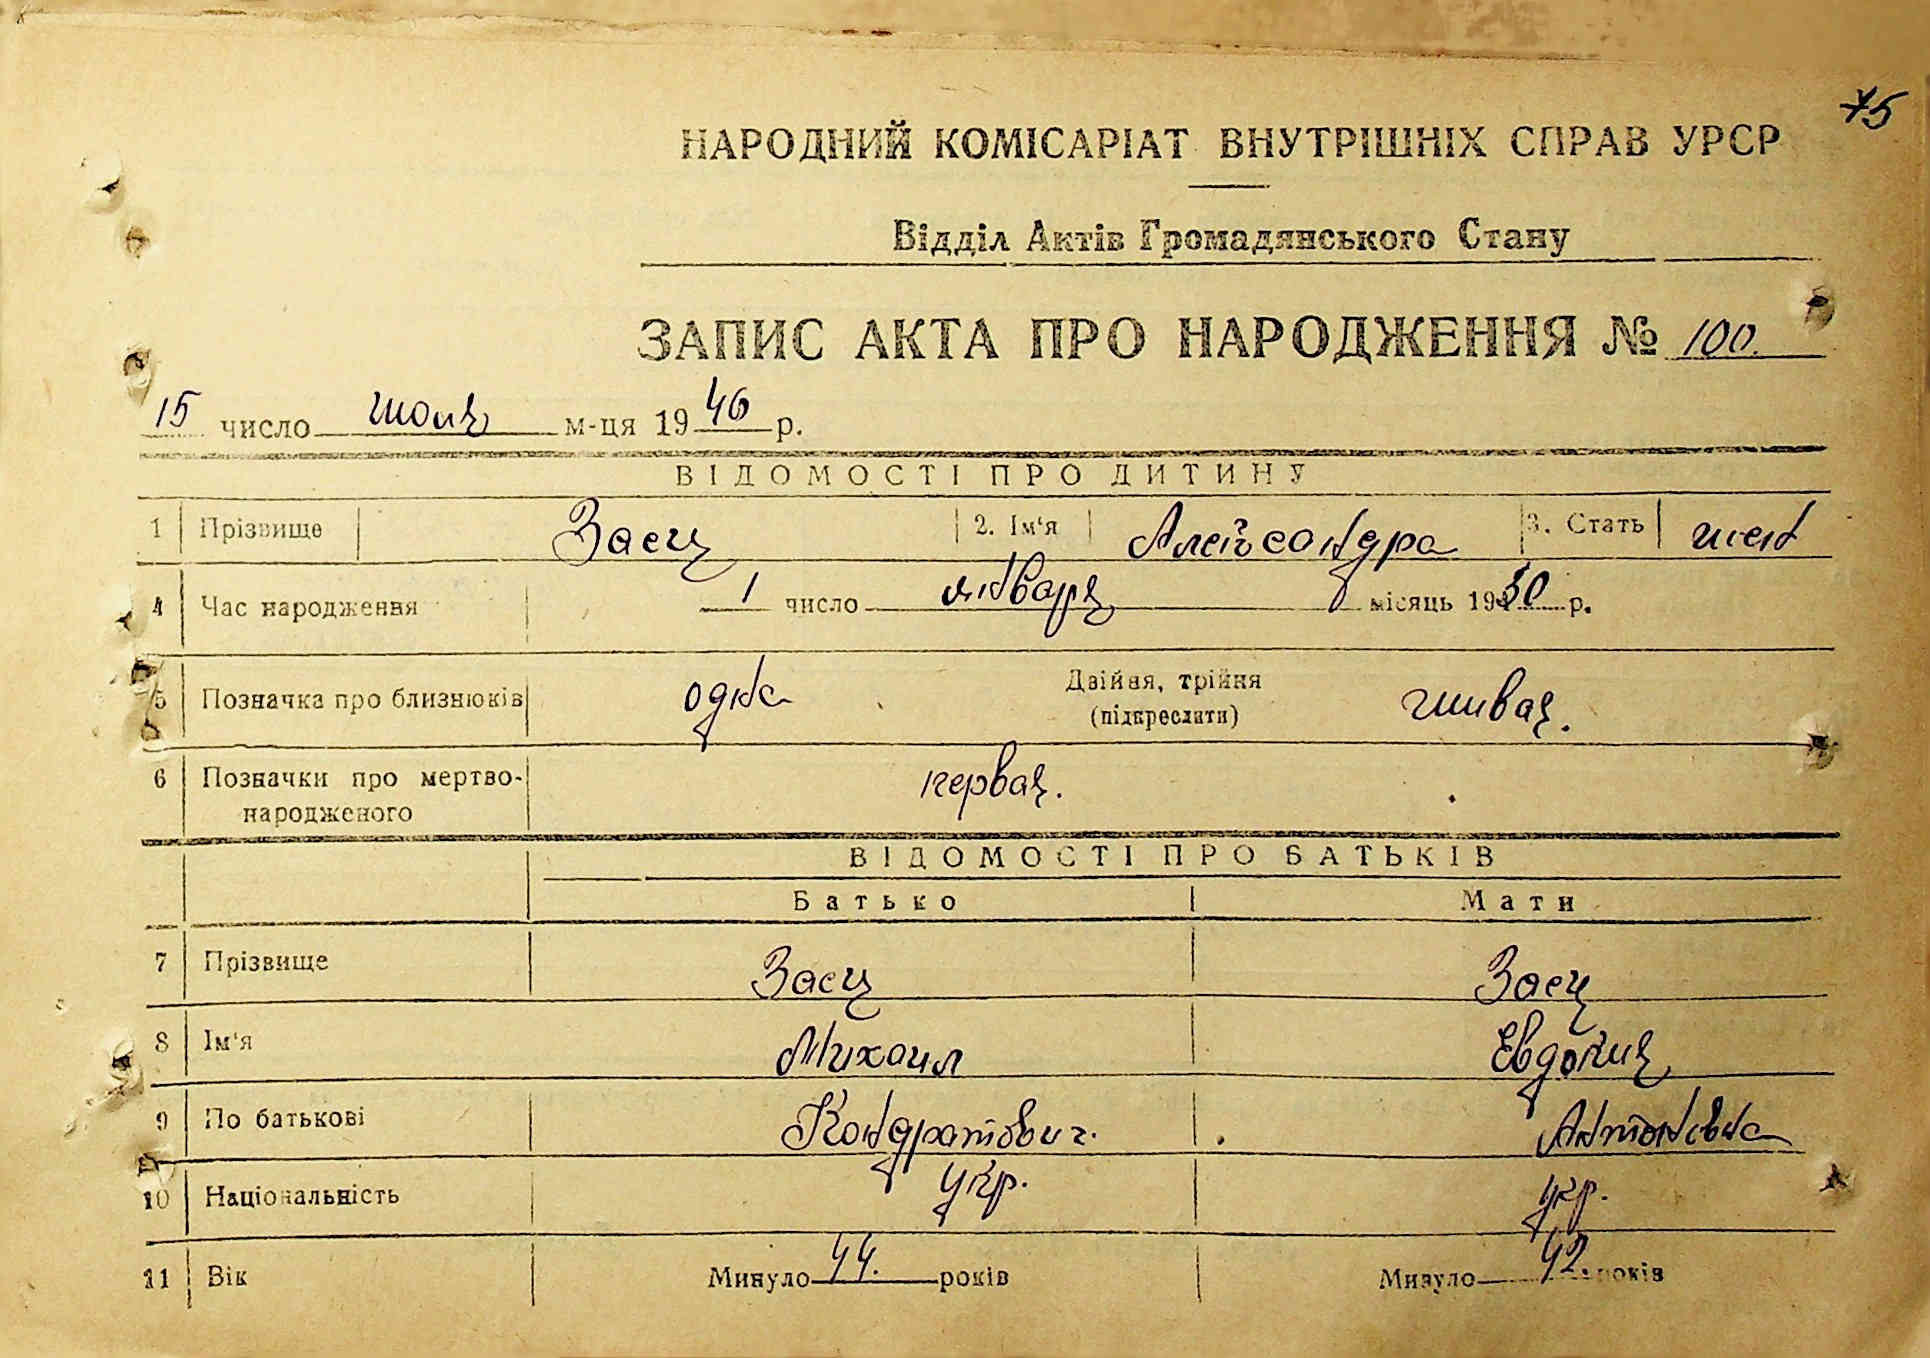 75
НАРОДНИЙ КОМІСАРІАТ ВНУТРІШНІХ СПРАВ УРСР
Відділ Актів Громадянського Стану
ЗАПИС АКТА ПРО НАРОДЖЕННЯ № 100.
15 число июля м-ця 1946 р.
ВІДОМОСТІ ПРО ДИТИНУ
1 Прізвище Заец 2. Ім'я Александра 3. Стать жен
4 Час народження 1 число января місяць 1930 р.
5 Позначка про близнюків одна Двійня, трійня живая.
(підкреслити)
6 Позначки про мертво-
народженого первая.
ВІДОМОСТІ ПРО БАТЬКІВ
Батько Мати
7 Прізвище Заец Заец
8 Ім'я Михаил Евдокия
9 По батькові Кондратович. Антоновна
10 Національність укр. укр.
11 Вік Минуло 44. років Минуло 42. років